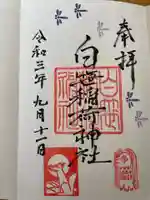 奉拝
白笹稲荷神社
令和三年九月十一日